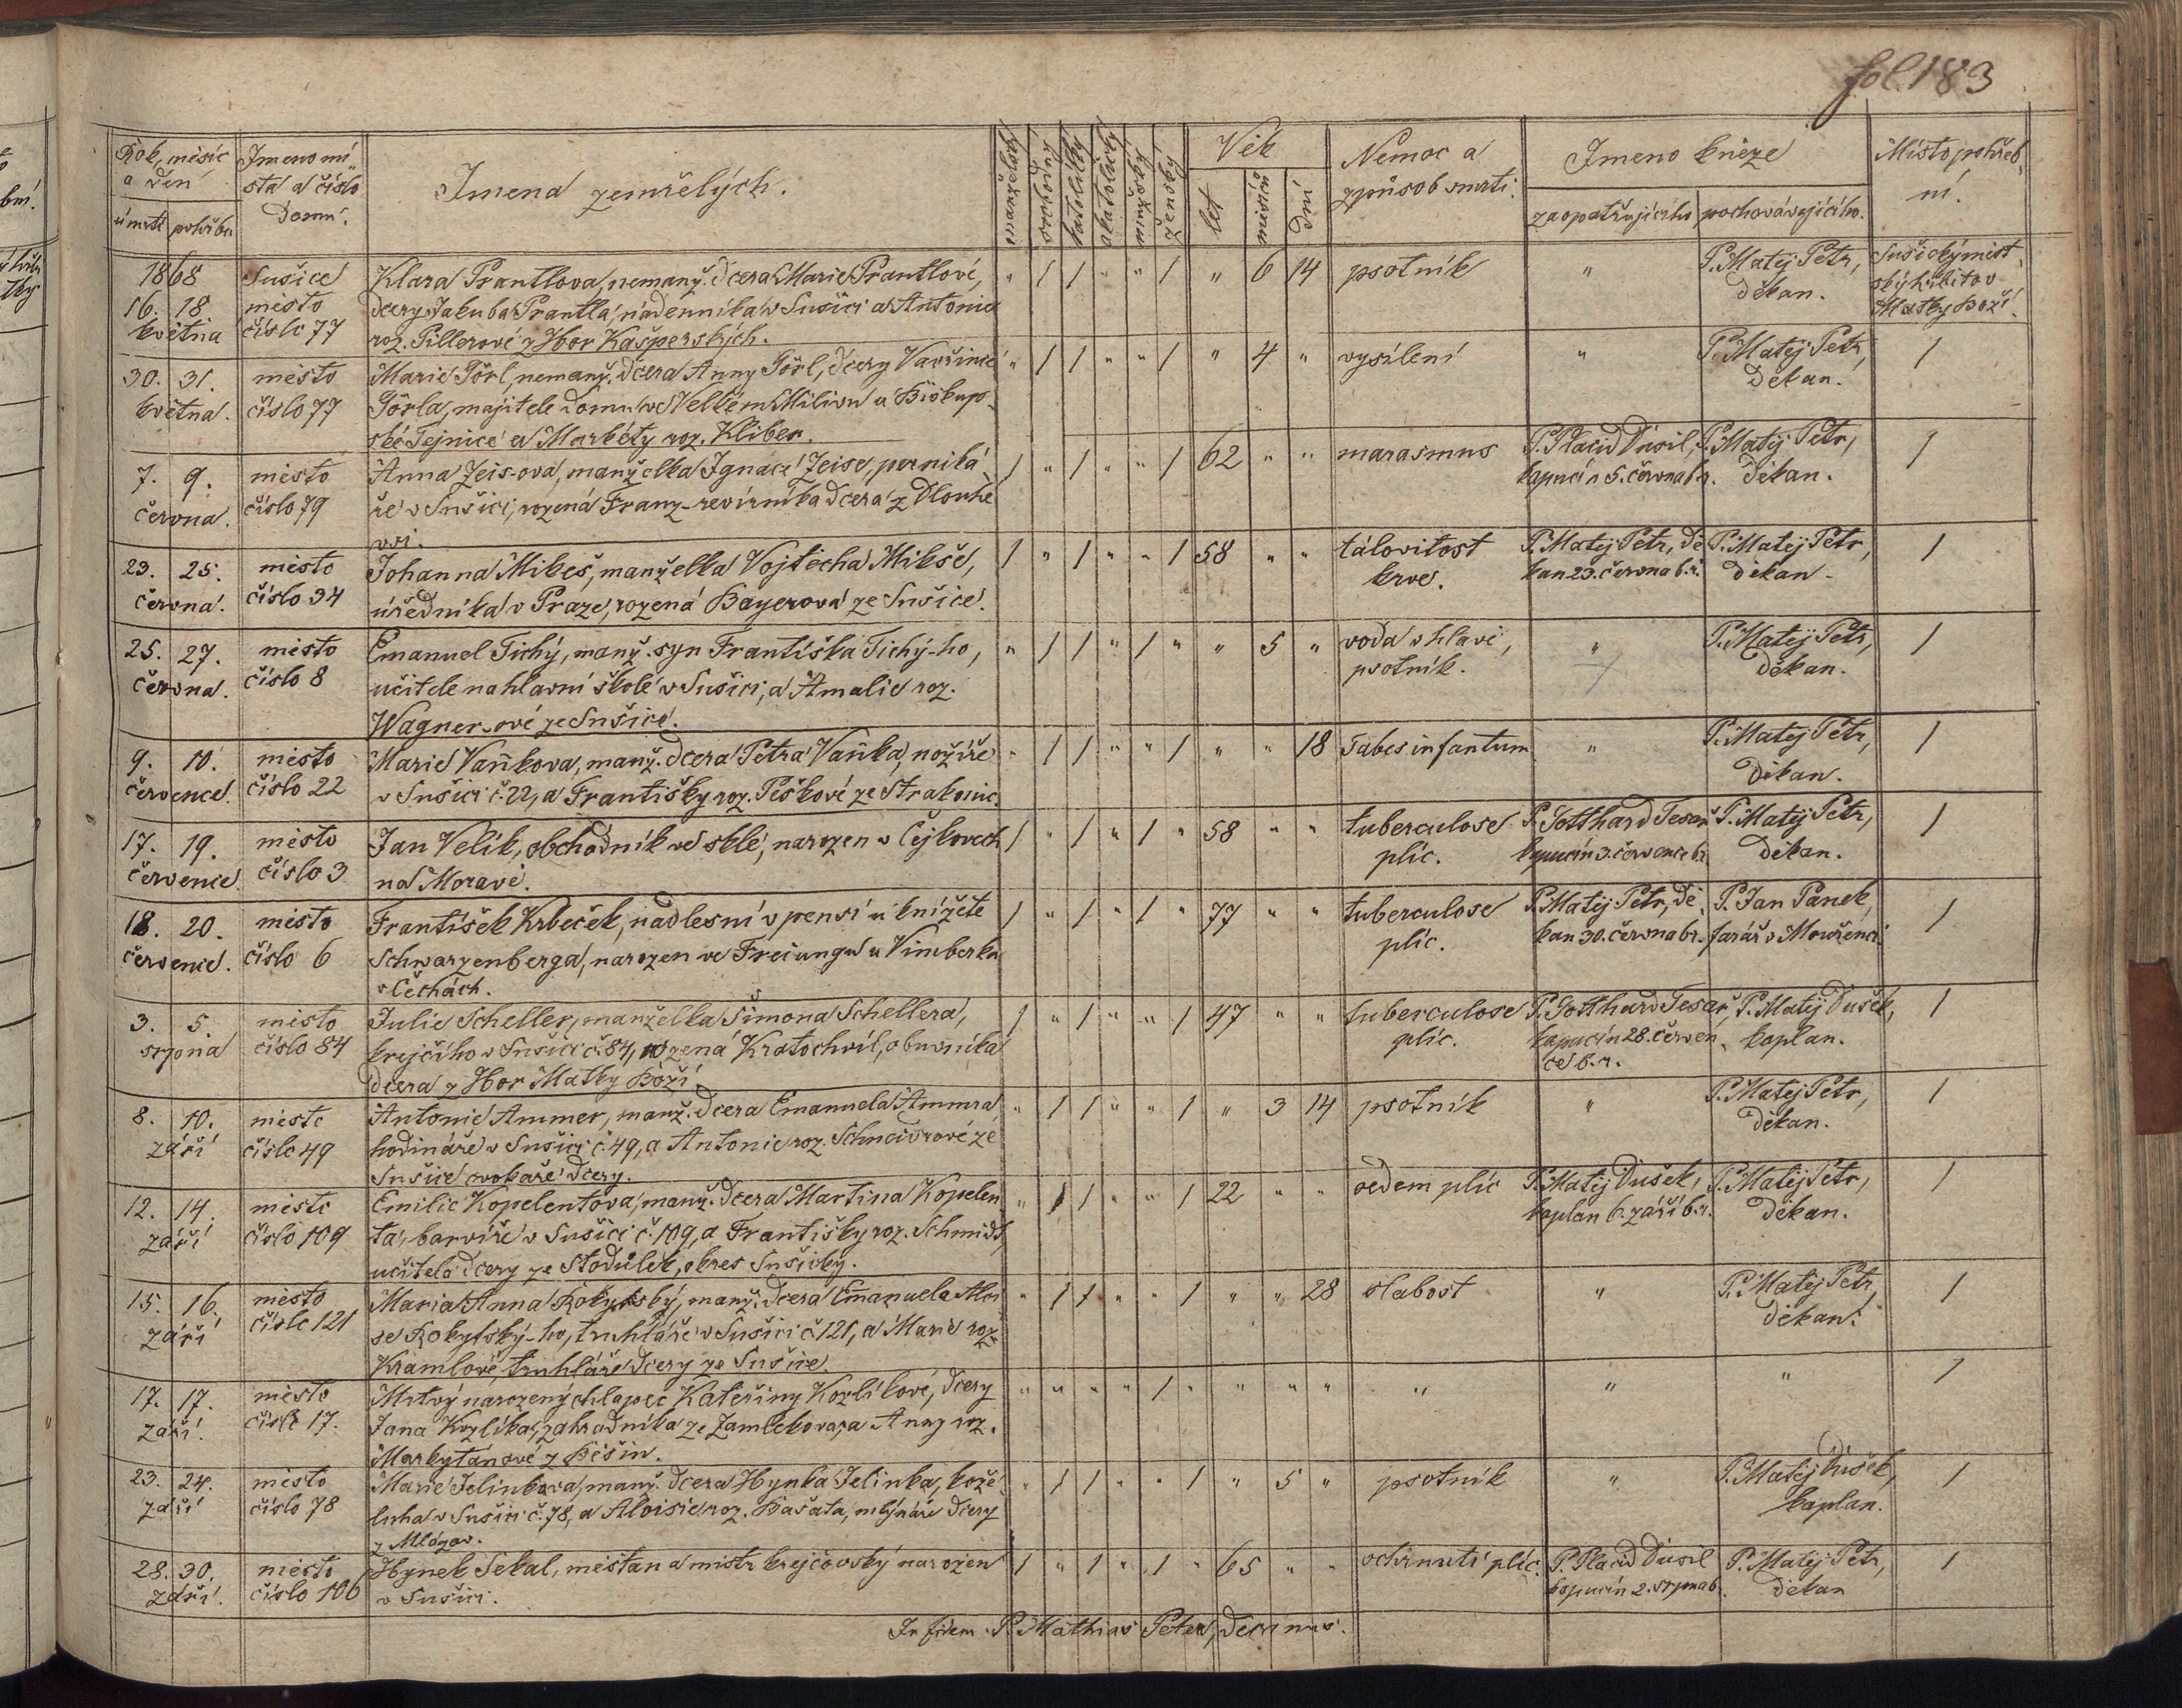 fol. 183
Rok, měsíc a den
úmrtí pohřbu
Jmeno mí„sta a číslo Domu.
Jmena zemřelých.
manželský
katolický
akatolický
mužský
ženský
Věk
let
měsíců
dní
Nemoc a způsob smrti.
Jmeno kněze
zaopatřujícího pochovávajícího.
Místo pohřeb„ní.
1868 Sušice Klara Prantlova, nemanž. dcera Marie Prantlové, " / / " " / " 6 14 psotník " P. Matěj Petr, Sušický měst„
16. 18. město dcery Jakuba Prantla, nádenníka v Sušici a Antonie děkan. ský hřbitov
května číslo 77 roz. Pillerové z Hor Kašperských. Matky Boží.
30. 31. město Marie Görl, nemanž. dcera Anny Görl, dcery Vavřince " / / " " / " 4 " vysílení " P. Matěj Petr, /
května. číslo 77 Görla, majitele domu ve Velkém Milivu u Biskup„ děkan.
ské Tejnice a Markéty roz. Kliber.
7. 9. město Anna Zeis-ova, manželka Ignace Zeise, perniká„ / " / " " / 62 " " marasmus P. Placid Dusil, P. Matěj Petr, /
června. číslo 79 ře v Sušici, rozená Franz-revírníka dcera z Dlouhé kapucín 5. června b.r. děkan.
vsi.
23. 25. město Johanna Mikeš, manželka Vojtěcha Mikše, / " / " " / 58 " " tálovitost P. Matěj Petr, dě„ P. Matěj Petr, /
června. číslo 34 úředníka v Praze, rozená Bayerová ze Sušice. krve. kan 23. června b.r. děkan.
25. 27. město Emanuel Tichý, manž. syn Františka Tichý-ho, " / / " / " " 5 " voda v hlavě, " P. Matěj Petr, /
června. číslo 8 učitele na hlavní škole v Sušici, a Amalie roz. psotník. děkan.
Wagner-ové ze Sušice.
9. 10. město Marie Vaňkova, manž. dcera Petra Vaňka, nožíře " / / " " / " " 18 Tabes infantum " P. Matěj Petr, /
července. číslo 22 v Sušici č. 22, a Františky roz. Peškové ze Strakonic. děkan.
17. 19. město Jan Velík, obchodník ve skle, narozen v Čejkovech / " / " / " 58 " " tuberculose P. Gotthard Tesař P. Matěj Petr, /
července. číslo 3 na Moravě. plíc. kapucín 3. července b.r. děkan.
18. 20. město František Krbeček, nadlesní v pensi u knížete / " / " / " 77 " " tuberculose P. Matěj Petr, dě„ P. Jan Panek, /
července. číslo 6 Schwarzenberga, narozen ve Freiungu u Vimberka plíc. kan 30. června b.r. farář v Mouřenci.
v Čechách.
3. 5. město Julie Scheller, manželka Šimona Schellera, / " / " " / 47 " " tuberculose P. Gotthard Tesař, P. Matěj Dušek, /
srpna číslo 84 krejčího v Sušici č. 84, rozená Kratochvíl, obuvníka plíc. kapucín 28. červen„ kaplan.
dcera z Hor Matky Boží. ce b.r.
8. 10. město Antonie Ammer, manž. dcera Emanuela Ammra " / / " " / " 3 14 psotník " P. Matěj Petr, /
září číslo 49 hodináře v Sušici č. 49, a Antonie roz. Schneidrové ze děkan.
Sušice dcery.
12. 14. město Emilie Kopelentova, manž. dcera Martina Kopelen„ " / / " " / 22 " " oedem plic P. Matěj Dušek, P. Matěj Petr, /
září číslo 109 ta, barvíře v Sušici č. 109, a Františky roz. Schmidt, kaplan 6. září b.r. děkan.
učitele dcery ze Stodůlek, okres Sušický.
15. 16. město Maria Anna Rokytský, manž. dcera Emanuela Aloi„ " / / " " / " " 28 slabost " P. Matěj Petr, /
září číslo 121 se Rokytský-ho, truhláře v Sušici č. 121, a Marie roz. děkan.
Kramlové, truhláře dcery ze Sušice.
17. 17. město Mrtvý narozený chlapec Kateřiny Kozlíkové, dcery " " " " / " " " " " " " /
září. číslo 17. Jana Kozlíka, zahradníka ze Zamlekova, a Anny roz.
Markytánové z Běšin.
23. 24. město Marie Jelinkova, manž. dcera Hynka Jelinka, kože„ " / / " " / " 5 " psotník " P. Matěj Dušek, /
září číslo 78 luha v Sušici č. 78, a Aloisie roz. Bašata, mlynáře dcery kaplan.
z Mlázov.
28. 30. město Hynek Sekal, měšťan a mistr krejčovský narozen / " / " / " 65 " " ochrnutí plíc. P. Placid Dusil P. Matěj Petr, /
září. číslo 106 v Sušici. kapucín 2. srpna b. děkan
In fidem P. Mathias Peter, Decanus.